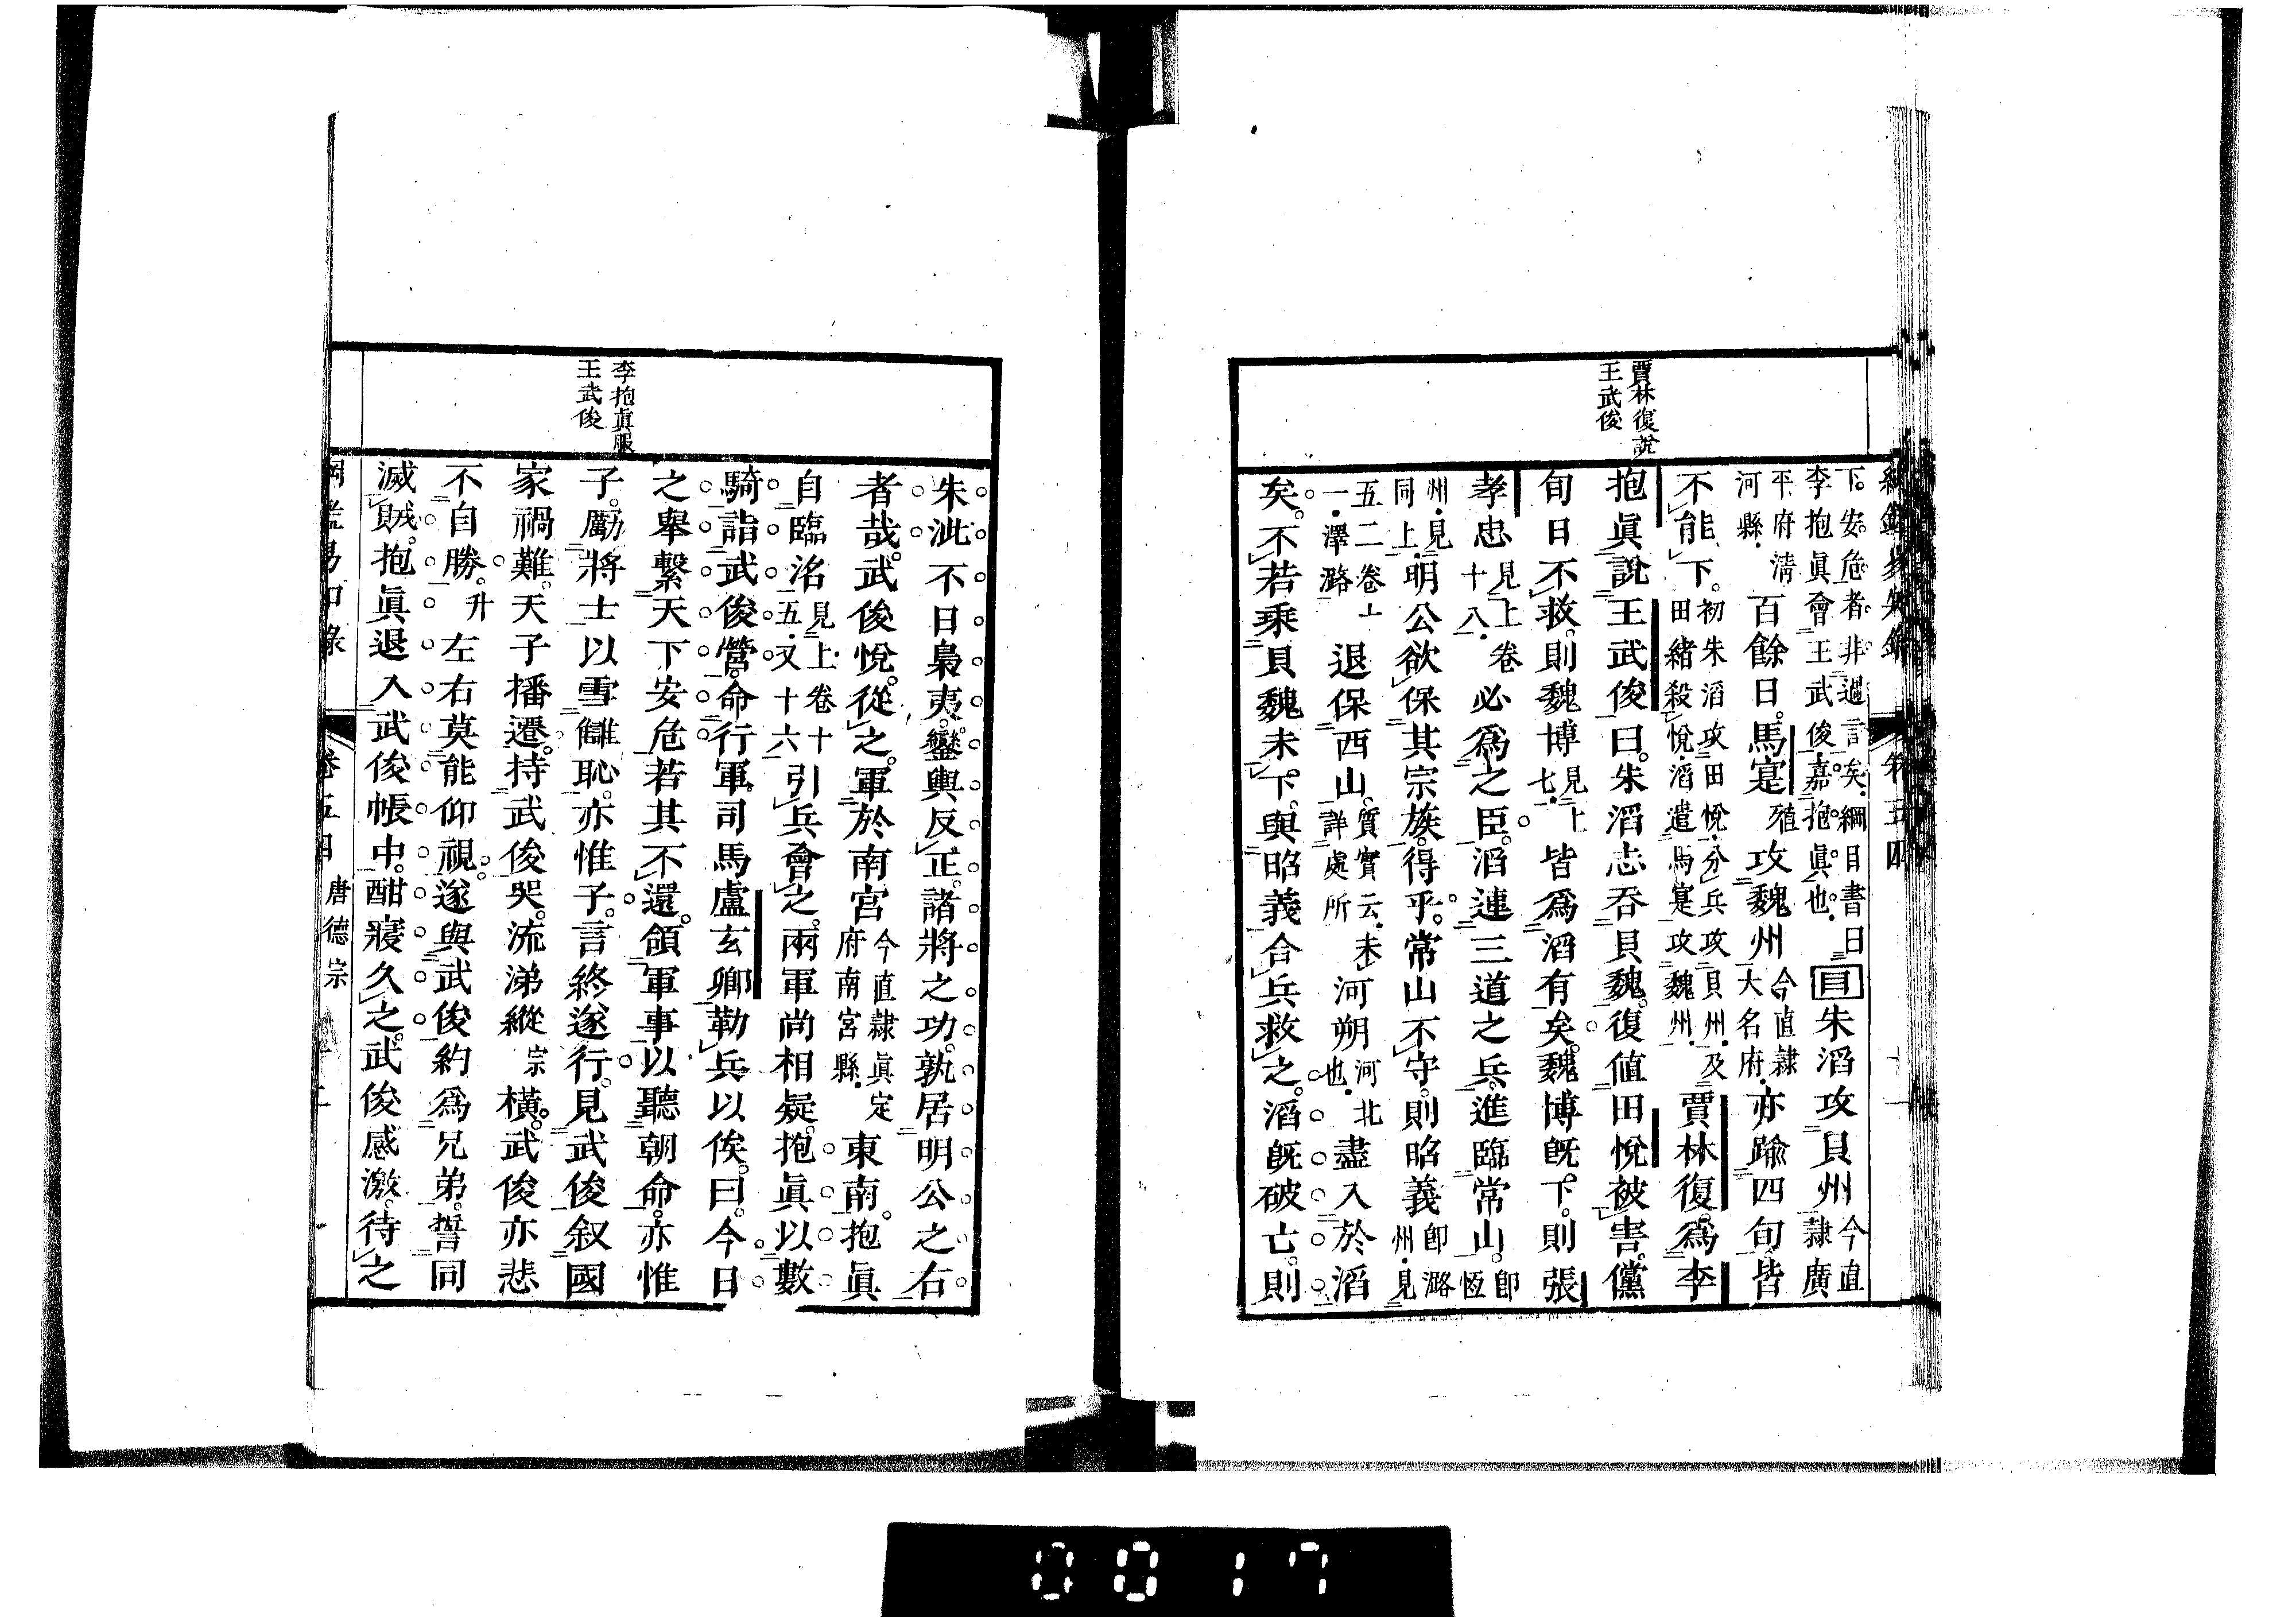 賈林復說
王武俊
下。安危者。非過言矣。綱目書曰
李抱眞會王武俊。嘉抱眞也。
目朱滔攻貝州今直隸廣
平府淸河縣。百餘日。馬寔殖攻魏州今直隸大名府。亦踰四旬。皆
不能下。初朱滔攻田悅。分兵攻貝州。及田緖殺悅。滔遣馬寔攻魏州。賈林復爲李
抱眞說王武俊曰。朱滔志吞貝魏。復値田悅被害。儻
旬日不救。則魏博見上七。皆爲滔有矣。魏博旣下。則張
孝忠見上卷十八。必爲之臣。滔連三道之兵。進臨常山。卽恆
州。見同上。明公欲保其宗族。得乎。常山不守。則昭義卽潞州。見
五二卷上一。澤潞退保西山。質實云。未詳處所河朔河北也。盡入於滔
矣。不若乘貝魏未下。與昭義合兵救之。滔旣破亡。則
李抱眞服
王武俊
朱泚不日梟夷。鑾輿反正。諸將之功。孰居明公之右
者哉。武俊悅。從之。軍於南宮今直隸眞定府南宮縣。東南。抱眞
自臨洺見上卷十五。又十六引兵會之。兩軍尙相疑。抱眞以數
騎詣武俊營。命行軍司馬盧玄卿勒兵以俟。曰。今日
之擧繫天下安危。若其不還。領軍事以聽朝命。亦惟
子。勵將士以雪讎恥。亦惟子。言終遂行。見武俊叙國
家禍難。天子播遷。持武俊哭。流涕縱宗橫。武俊亦悲
不自勝。升左右莫能仰視。遂與武俊約爲兄弟。誓同
滅賊。抱眞退入武俊帳中。酣寢久之。武俊感激。待之
卷五四 唐德宗
0017